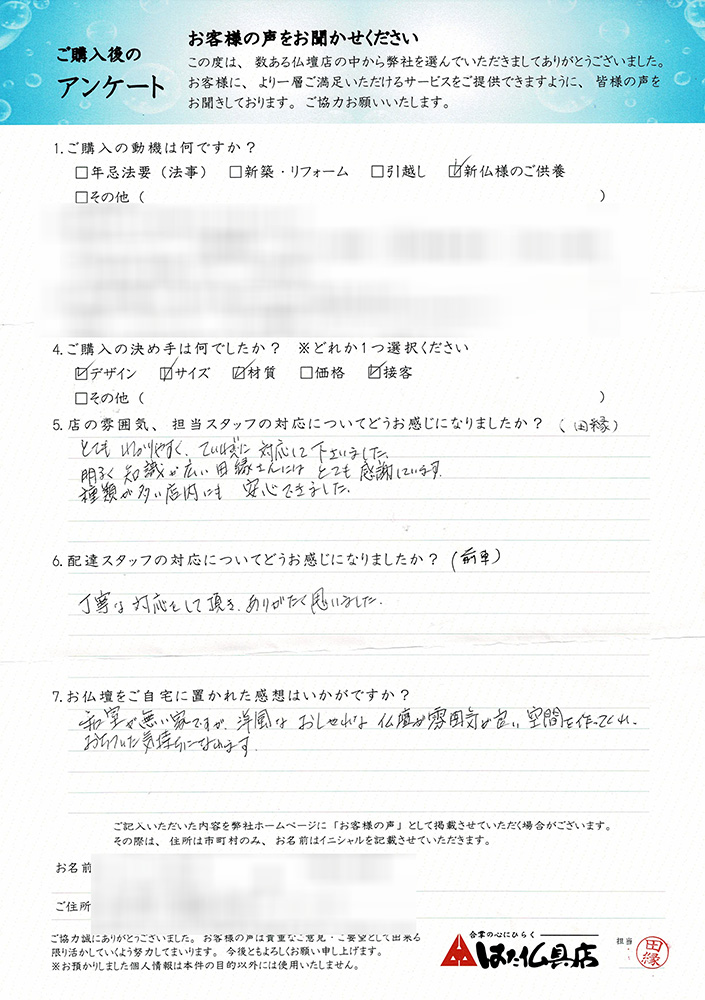 ご購入後の
アンケート
お客様の声をお聞かせください
この度は、数ある仏壇店の中から弊社を選んでいただきましてありがとうございました。
お客様に、より一層ご満足いただけるサービスをご提供できますように、皆様の声を
お聞きしております。ご協力お願いいたします。
1.ご購入の動機は何ですか？
□年忌法要（法事） □新築・リフォーム □引越し ☑新仏様のご供養
□その他（ ）
4.ご購入の決め手は何でしたか？ ※どれか1つ選択ください
☑デザイン ☑サイズ ☑材質 □価格 ☑接客
□その他（ ）
5.店の雰囲気、担当スタッフの対応についてどうお感じになりましたか？（田縁）
とても わかりやすく、ていねいに 対応して下さいました。
明るく 知識が広い 田縁さんには とても 感謝しています。
種類が多い店内にも 安心できました。
6.配達スタッフの対応についてどうお感じになりましたか？（前平）
丁寧な対応をして頂き、ありがたく思いました。
7.お仏壇をご自宅に置かれた感想はいかがですか？
和室が無い家ですが、洋風な おしゃれな 仏壇が雰囲気が良い 空間を作ってくれ、
おちついた気持ちになれます。
ご記入いただいた内容を弊社ホームページに「お客様の声」として掲載させていただく場合がございます。
その際は、住所は市町村のみ、お名前はイニシャルを記載させていただきます。
お名前
ご住所
ご協力誠にありがとうございました。お客様の声は貴重なご意見・ご要望として出来る
限り活かしていくよう努力してまいります。今後ともよろしくお願い申し上げます。
※お預かりしました個人情報は本件の目的以外には使用いたしません。
合掌の心にひらく
はた仏具店
担当
田縁